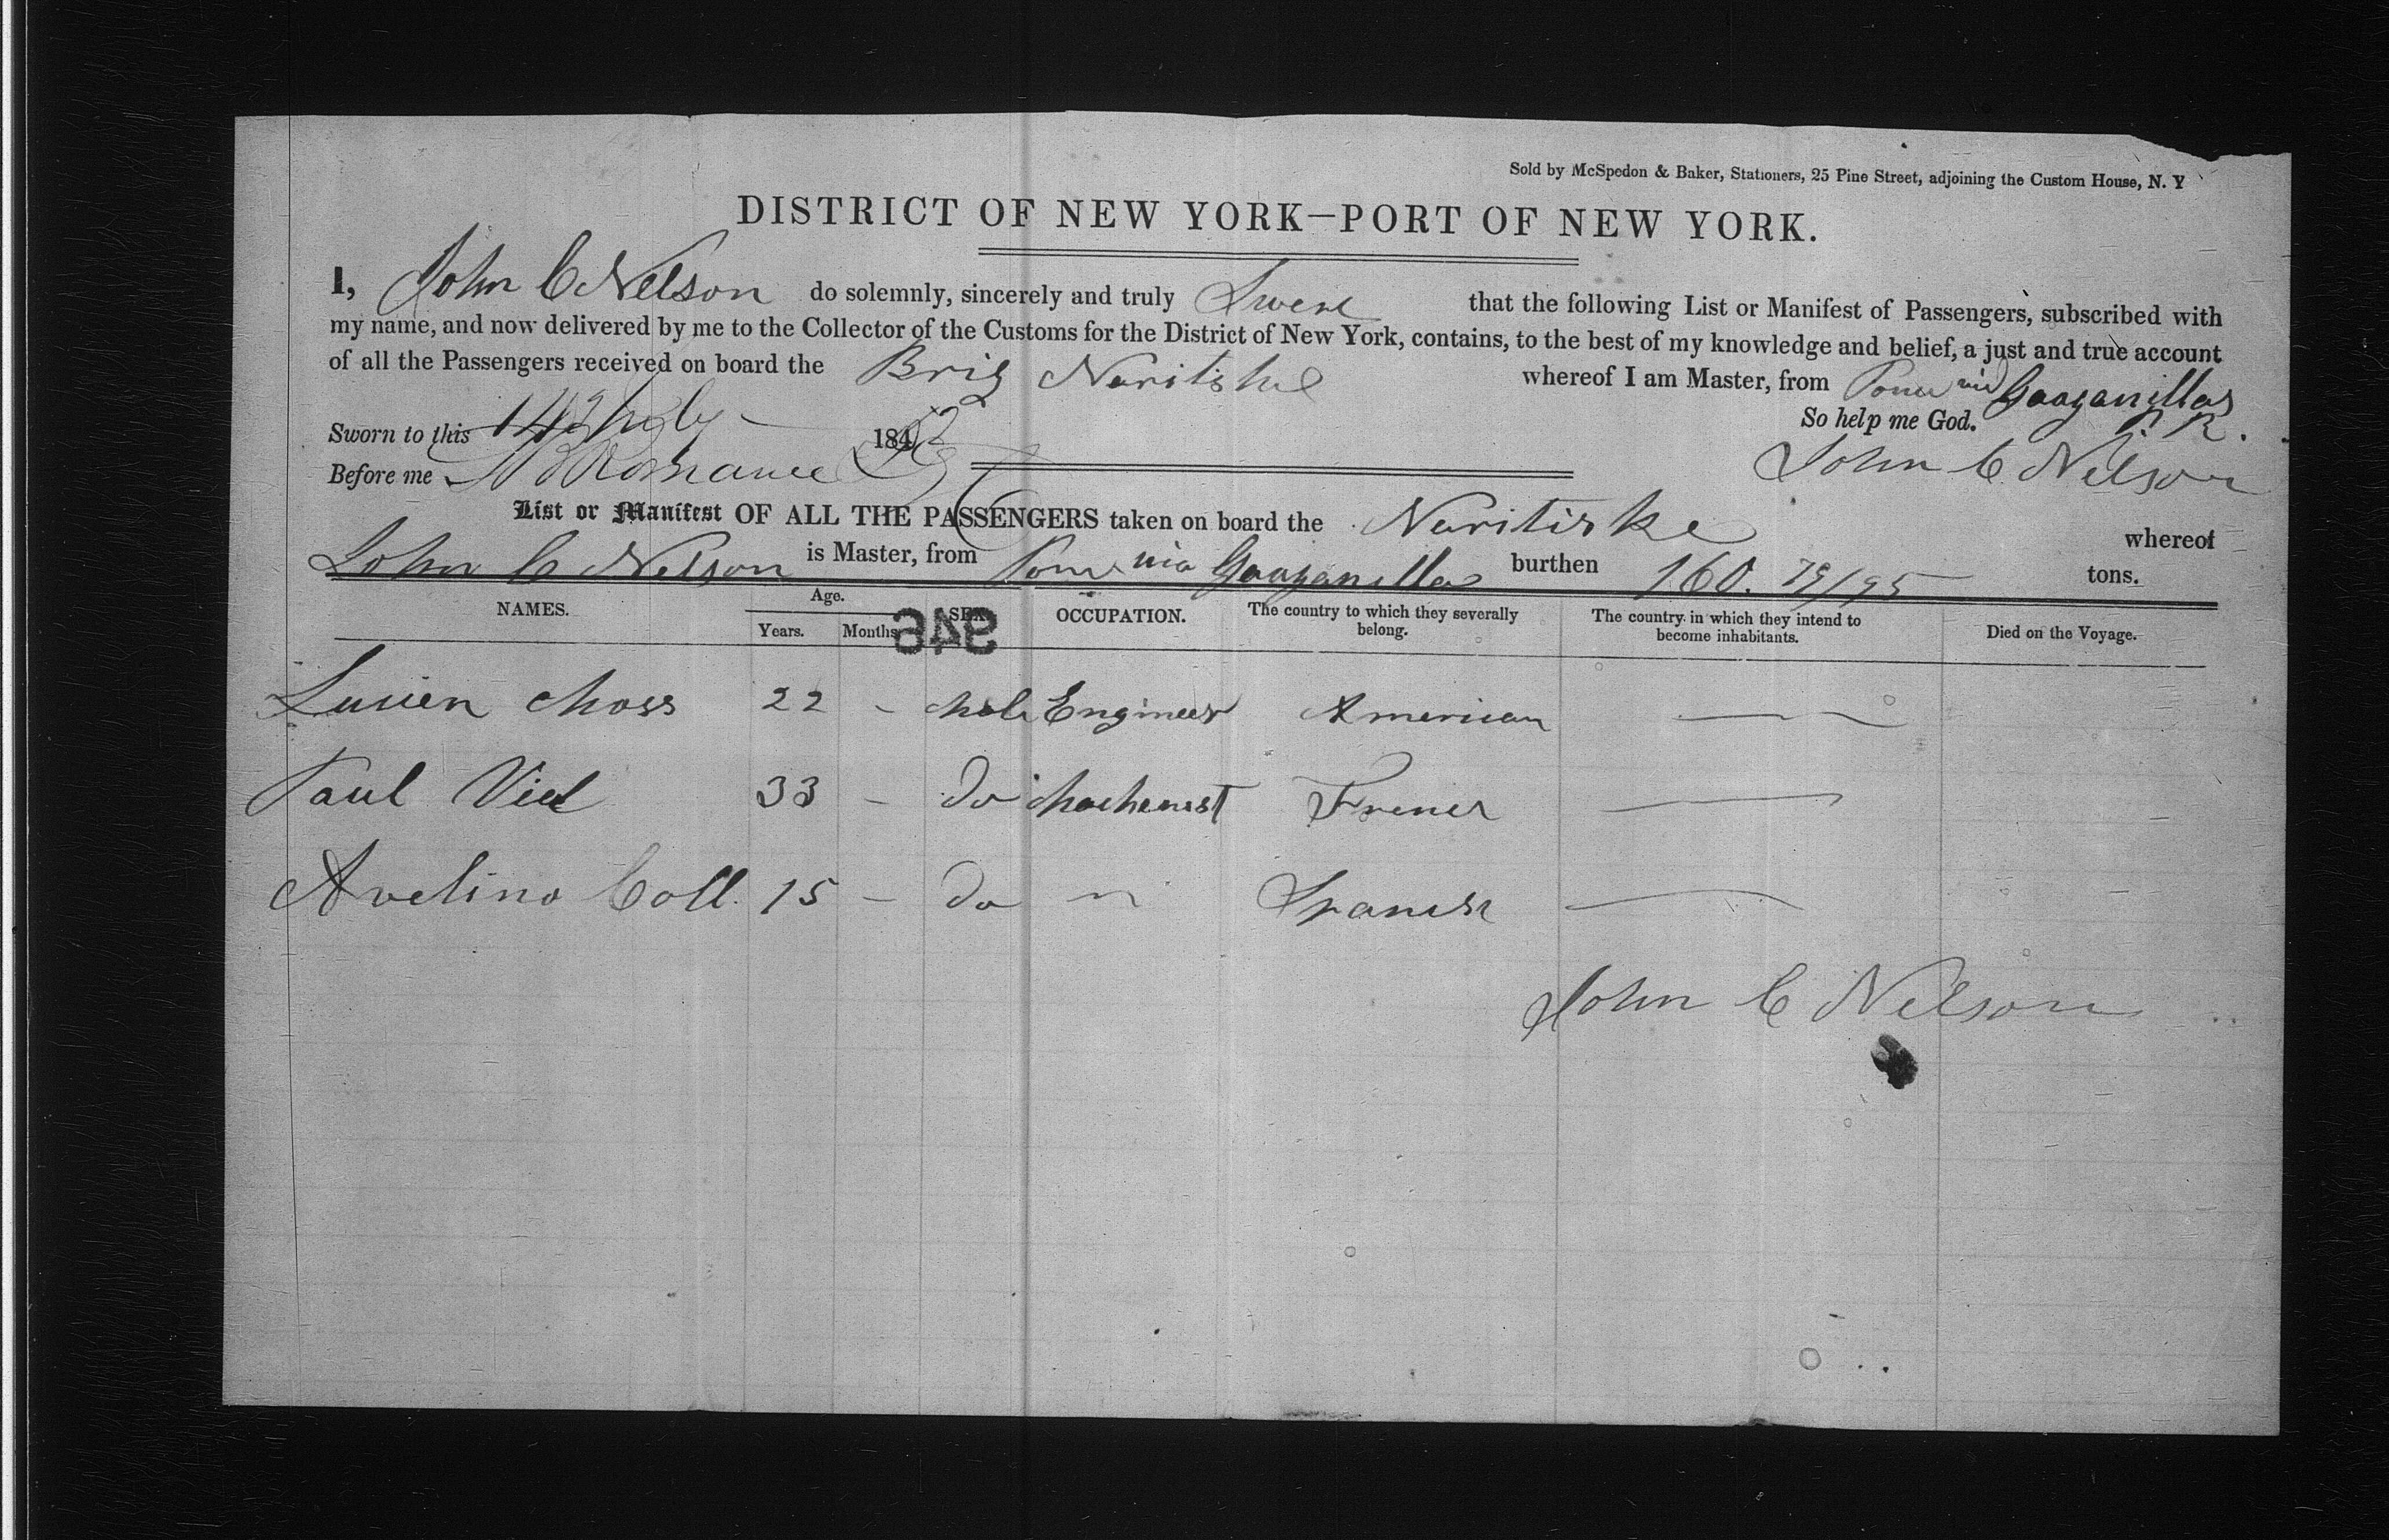 Sold by McSpedon & Baker, Stationers, 25 Pine Street, adjoining the Custom House, N. Y
DISTRICT OF NEW YORK—PORT OF NEW YORK.
I, John C Nelson do solemnly, sincerely and truly Swere that the following List or Manifest of Passengers, subscribed with
my name, and now delivered by me to the Collector of the Customs for the District of New York, contains, to the best of my knowledge and belief, a just and true account
of all the Passengers received on board the Brig whereof I am Master, from via
So help me God. P R.
Sworn to this 184
Before me
John C Nelson
List or Manifest OF ALL THE PASSENGERS taken on board the whereof
John C Nelson is Master, from via burthen 160. 79/95 tons.
NAMES. Age. SEX. OCCUPATION. The country to which they severally belong. The country in which they intend to become inhabitants. Died on the Voyage.
Years. Months
946
Lucien Moss 22 - Male Engineer American
Paul 33 - Do French
Avelino Coll. 15 - Do Spanish
John C Nelson